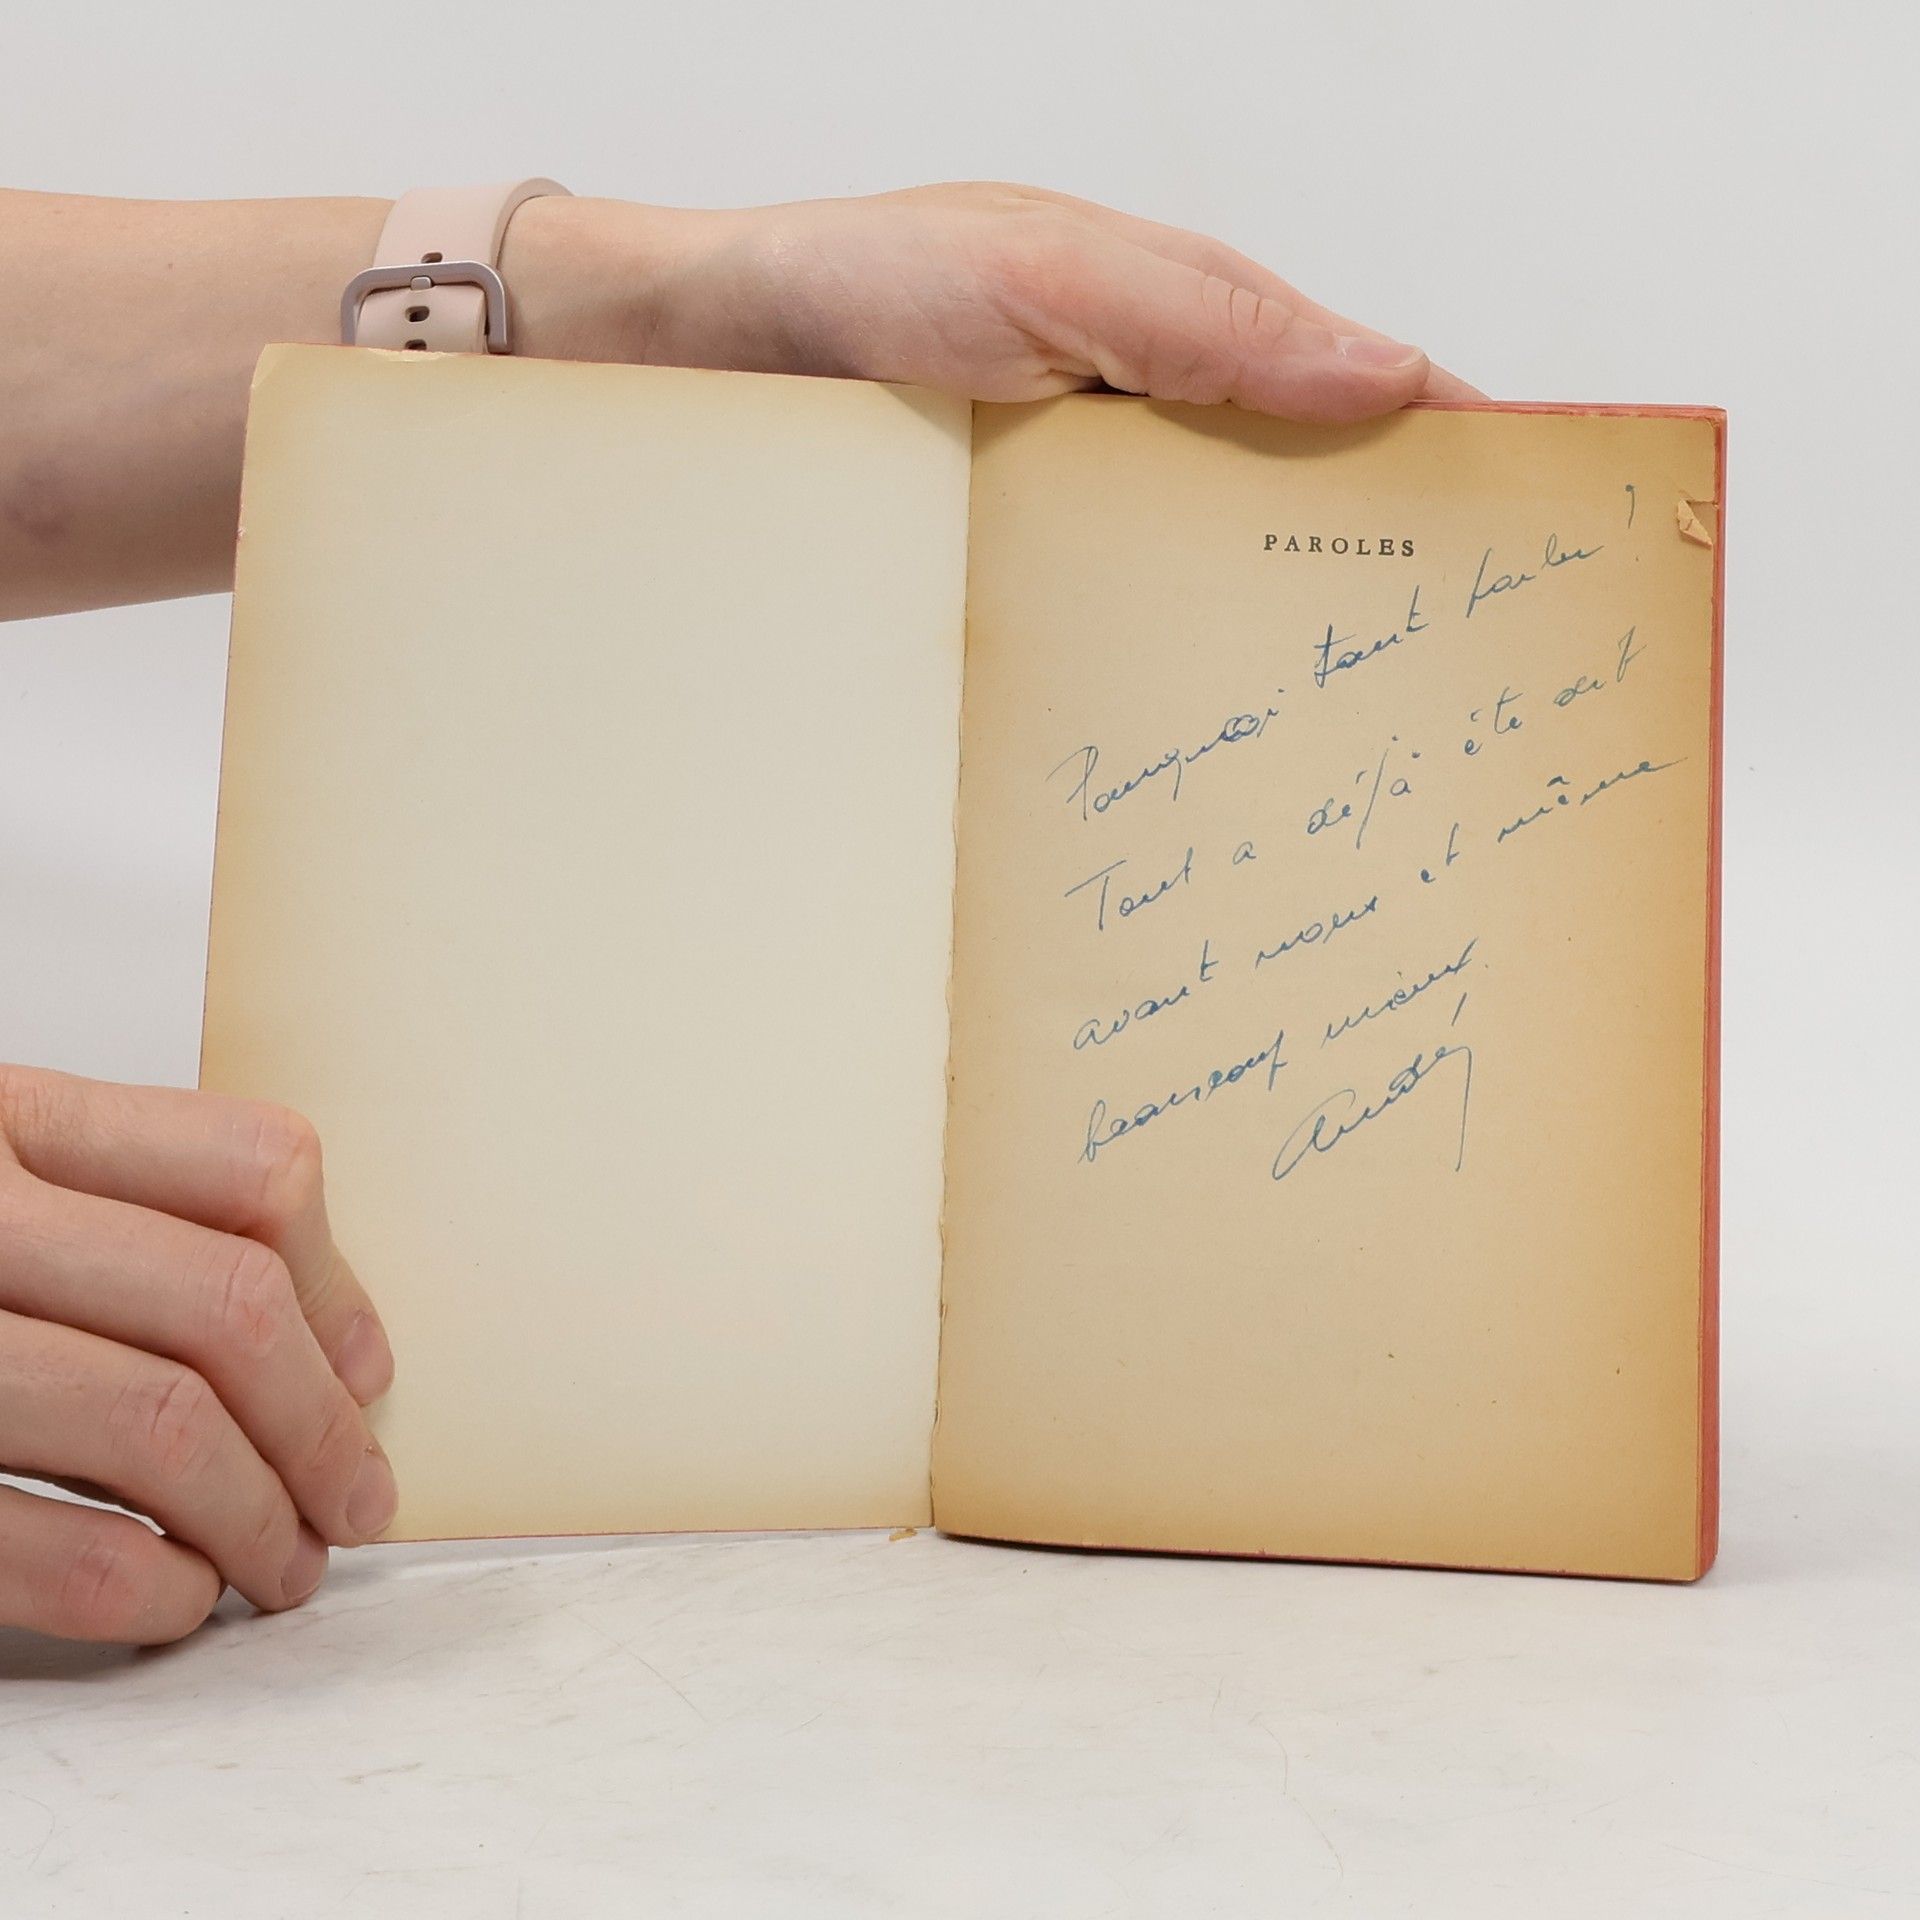 PAROLES
Pourquoi tant parler ?
Tout a déjà été dit
avant nous et même
beaucoup mieux.
André